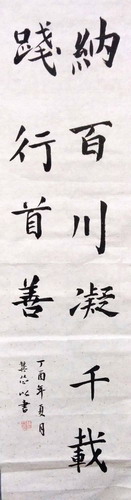 納百川凝千載
踐行首善
丁酉年夏月